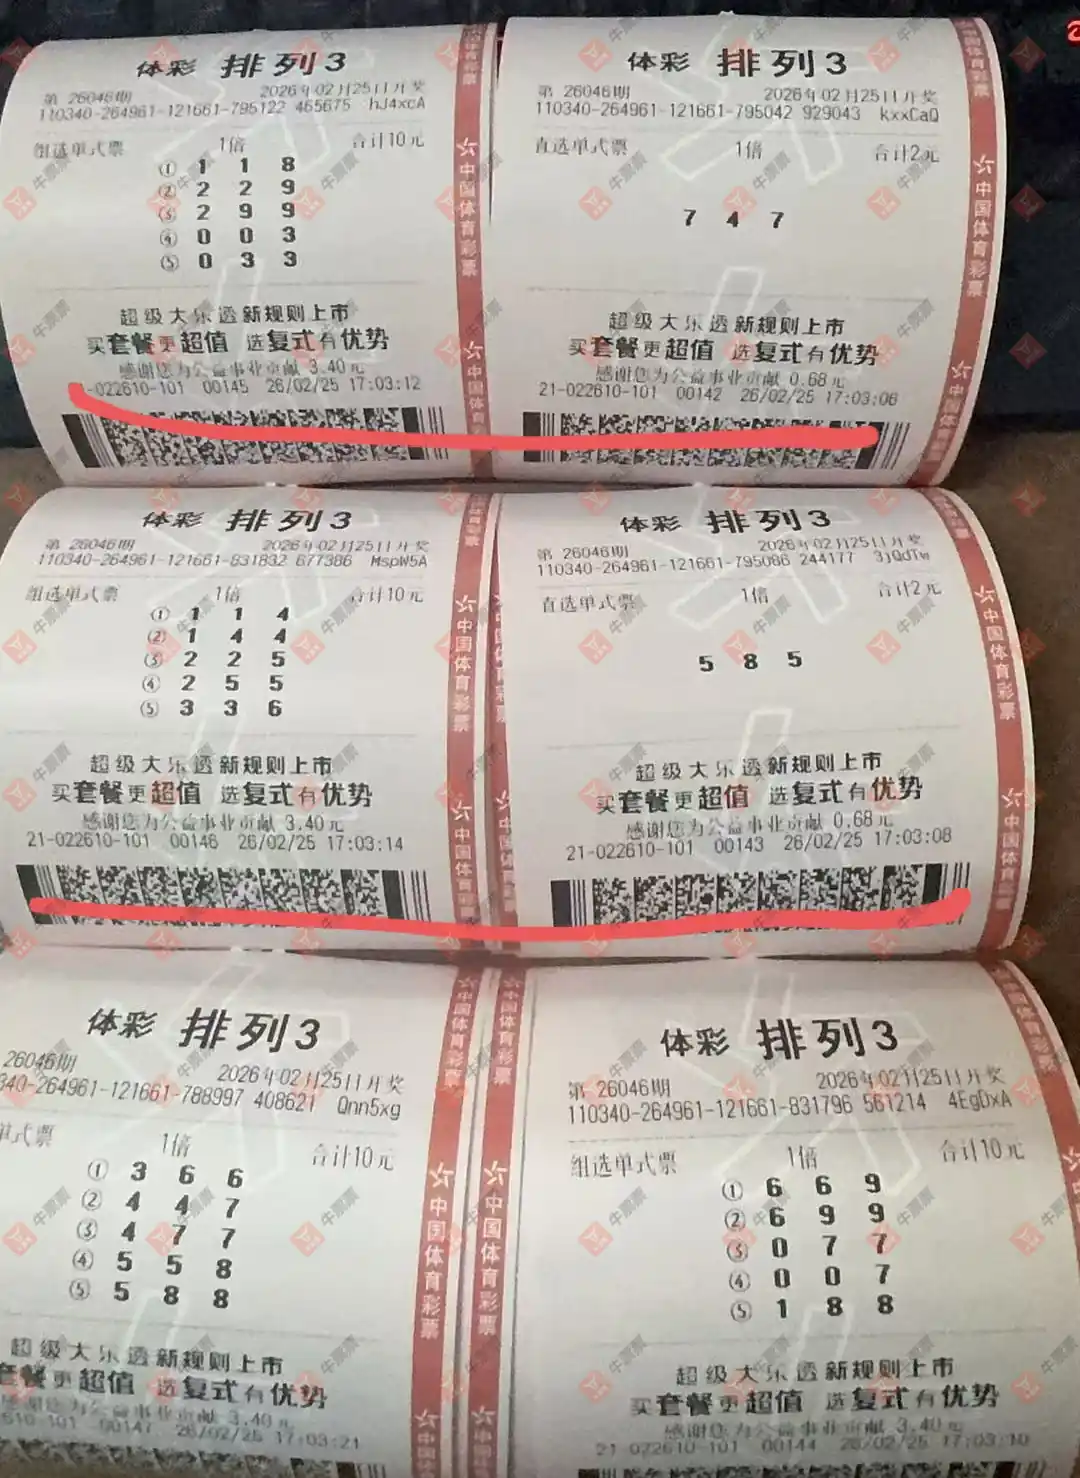 体彩 排列3
第 26046期 2026年02月25日开奖
110340-264961-121661-795122 465675 hJ4xcA
组选单式票 1倍 合计10元
① 1 1 8
② 2 2 9
③ 2 9 9
④ 0 0 3
⑤ 0 3 3
超级大乐透新规则上市
买套餐更超值 选复式有优势
感谢您为公益事业贡献 3.40元
-022610-101 00145 26/02/25 17:03:12
中国体育彩票
体彩 排列3
第 26046期 2026年02月25日开奖
110340-264961-121661-795042 929043 kxxCaQ
直选单式票 1倍 合计2元
7 4 7
超级大乐透新规则上市
买套餐更超值 选复式有优势
感谢您为公益事业贡献 0.68元
21-022610-101 00142 26/02/25 17:03:06
中国体育彩票
体彩 排列3
第 26046期 2026年02月25日开奖
110340-264961-121661-831832 677386 MspW5A
组选单式票 1倍 合计10元
① 1 1 4
② 1 4 4
③ 2 2 5
④ 2 5 5
⑤ 3 3 6
超级大乐透新规则上市
买套餐更超值 选复式有优势
感谢您为公益事业贡献 3.40元
21-022610-101 00146 26/02/25 17:03:14
中国体育彩票
体彩 排列3
第 26046期 2026年02月25日开奖
110340-264961-121661-795086 244177 3jQdTw
直选单式票 1倍 合计2元
5 8 5
超级大乐透新规则上市
买套餐更超值 选复式有优势
感谢您为公益事业贡献 0.68元
21-022610-101 00143 26/02/25 17:03:08
中国体育彩票
体彩 排列3
26046期 2026年02月25日开奖
340-264961-121661-788997 408621 Qnn5xg
单式票 1倍 合计10元
① 3 6 6
② 4 4 7
③ 4 7 7
④ 5 5 8
⑤ 5 8 8
超级大乐透新规则上市
套餐更超值 选复式有优势
感谢您为公益事业贡献 3.40元
610-101 00147 26/02/25 17:03:21
中国体育彩票
体彩 排列3
第 26046期 2026年02月25日开奖
110340-264961-121661-831796 561214 4EgDxA
组选单式票 1倍 合计10元
① 6 6 9
② 6 9 9
③ 0 7 7
④ 0 0 7
⑤ 1 8 8
超级大乐透新规则上市
买套餐更超值 选复式有优势
感谢您为公益事业贡献 3.40元
21-022610-101 00144 26/02/25 17:03:10
牛票票